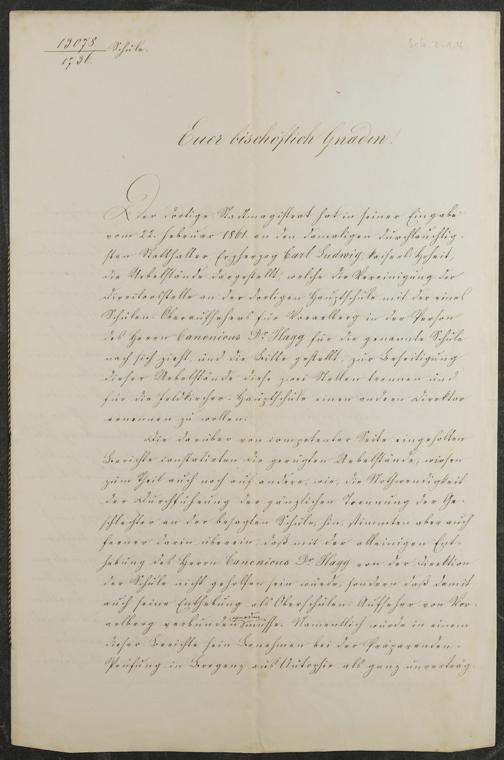 13073 Schule.
1736.
Euer bischöflich Gnaden!
Der dortige Stadtmagistrat hat in seiner Eingabe
vom 22. Februar 1861 an den damaligen durchlauchtig-
sten Statthalter Erzherzog Carl Ludwig kaiserl. Hoheit,
die Uebelstände dargestellt, welche die Vereinigung der
Direktorstelle an der dortigen Hauptschule mit der eines
Schulen Oberaufsehers für Vorarlberg in der Person
des Herrn Canonicus Dr Flagg für die genannte Schule
nach sich zieht, und die Bitte gestellt, zur Beseitigung
dieser Uebelstände diese zwei Stellen trennen und
für die Feldkircher Hauptschule einen andern Direktor
ernennen zu wollen.
Die darüber von competenter Seite eingeholten
Berichte constatirten die gerügten Uebelstände, wiesen
zum Theil auch noch auf andere, wie die Nothwendigkeit
der Durchführung der gänzlichen Trennung der Ge-
schlechter an der besagten Schule, hin, stimmten aber auch
ferner darin überein, daß mit der alleinigen Ent-
hebung des Herrn Canonicus Dr Flagg von der Direktion
der Schule nicht geholfen sein würde, sondern daß damit
auch seine Enthebung als Oberschulen Aufseher von Vor-
arlberg verbunden müsse. Namentlich wurde in einem
dieser Berichte sein Benehmen bei der Präparanden-
Prüfung in Bregenz aus Autopsie als ganz unverträg-